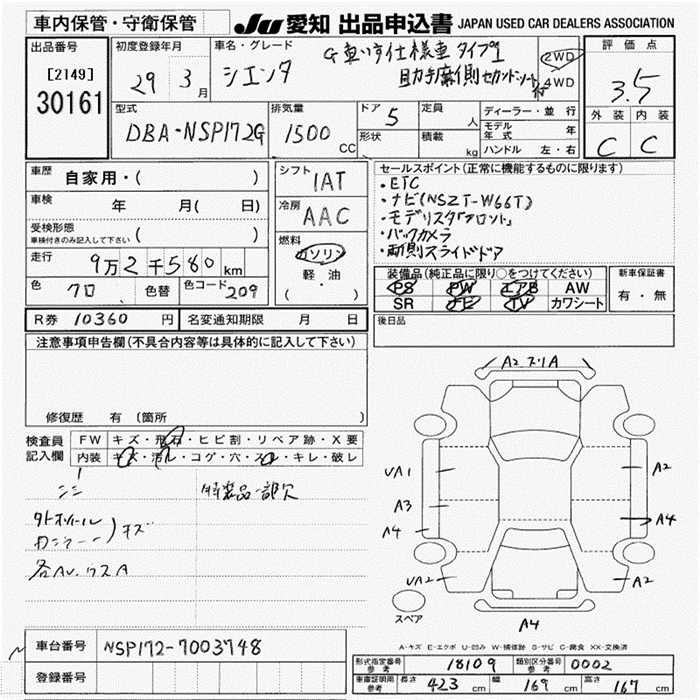 車内保管・守衛保管
JU 愛知 出品申込書 JAPAN USED CAR DEALERS ASSOCIATION
出品番号
[2149]
30161
初度登録年月
29 3月
車名・グレード
シエンタ
G 車いす仕様車 タイプ1
助手席側セカンドシート付
2WD
4WD
評価点
3.5
外装 内装
C C
型式
DBA-NSP172G
排気量
1500 CC
ドア 5
形状
定員 人
積載 kg
ディーラー・並行
モデル年式 年
ハンドル 左・右
車歴 自家用・( )
車検 年 月( 日)
受検形態
車検付きのみ記入して下さい ( )
走行 9万2千580km
色 クロ 色替 色コード 209
シフト
1AT
冷房
AAC
燃料
ガソリン
軽・油
( )
セールスポイント(正常に機能するものに限ります)
・ETC
・ナビ(NSZT-W66T)
・モデリスタ「フロント」
・バックカメラ
・両側スライドドア
装備品(純正品に限り○をつけてください)
PS PW エアB AW
SR ナビ TV カワシート
新車保証書
有・無
R券 10360 円 名変通知期限 月 日
後日品
注意事項申告欄(不具合内容等は具体的に記入して下さい)
修復歴 有 〔箇所 〕
検査員記入欄
FW キズ・飛石・ヒビ割・リペア跡・X要
内装 キズ・汚れ・コゲ・穴・スレ・キレ・破レ
特装品一部欠
キズ
A2 スリA
UA1
A2
A3
A4
A4
UA2
A2
スペア
A4
A-キズ E-エクボ U-凹み W-補修跡 S-サビ C-腐食 XX-交換済
車台番号 NSP172-7003748
登録番号
形式指定番号 参考 18109 類別区分番号 参考 0002
車庫証明用 参考 長さ 423 cm 幅 169 cm 高さ 167 cm